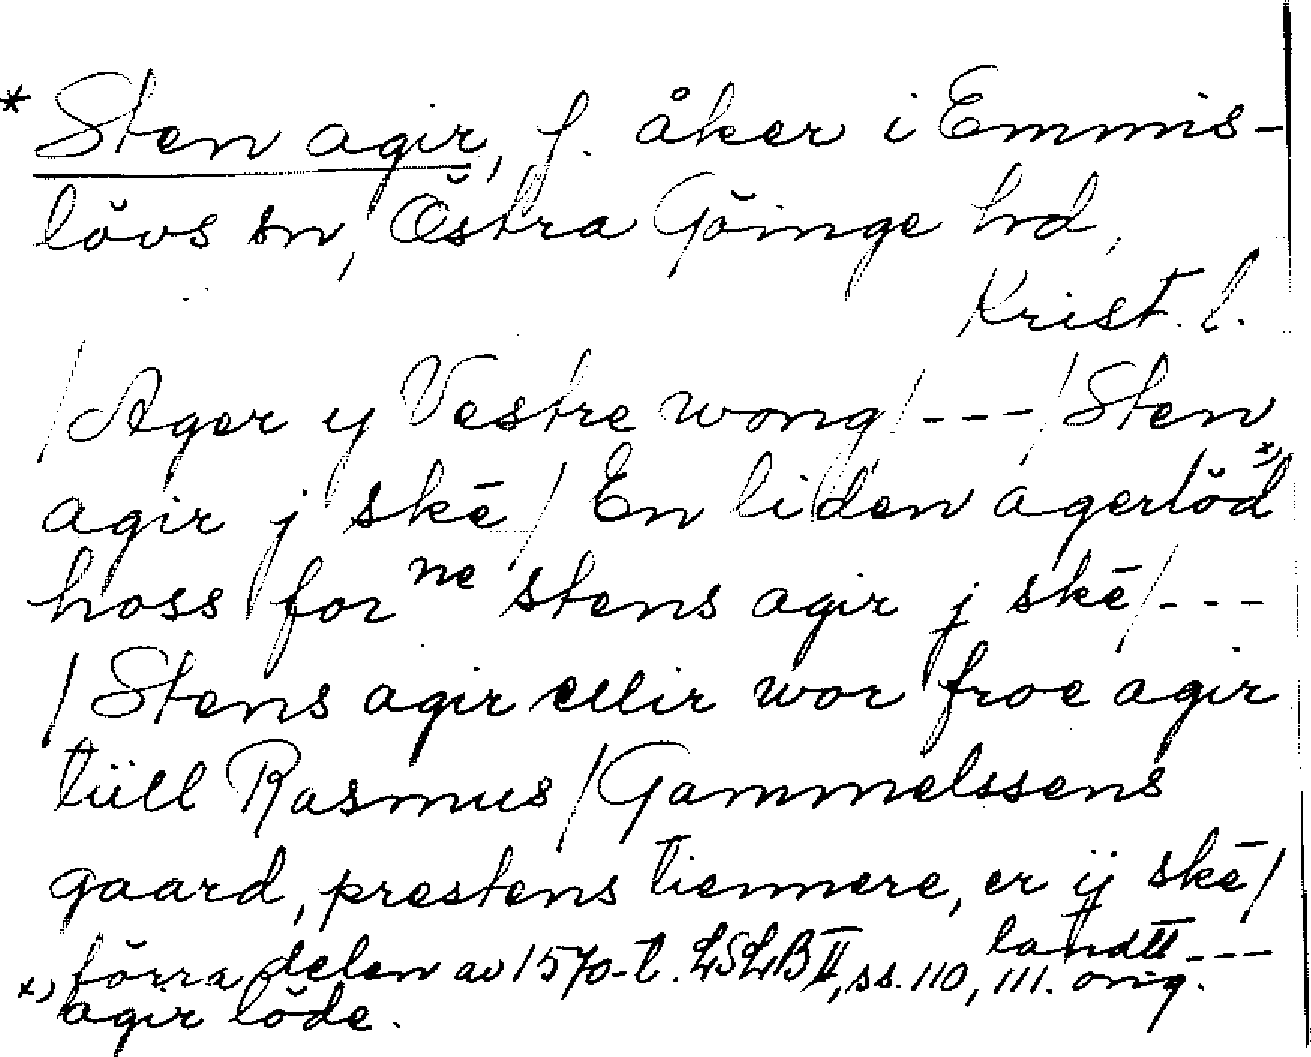 * Sten agir, f. åker i Emmis-
lövs sn, Östra Göinge hd,
Krist. l.
/Ager y Vestre wong/---/Sten
agir j skē/ En liden agerlöd x)
hoss for ne stens agir j skē/---
/Stens agir ellir wor froe agir
tüll Rasmus/Gammelssens
gaard, prestens tiennere, er ij skē/
landtt---
förra delen av 1570-t. LSLB II, ss. 110, 111. orig.
x) agir löde.